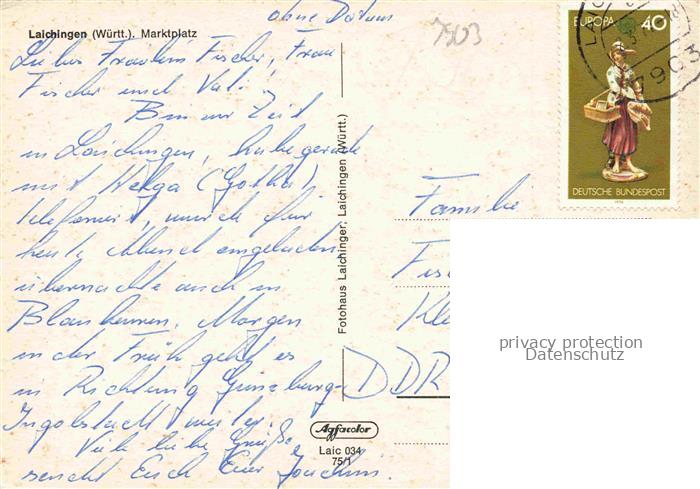 ohne Datum
7903
Laichingen (Württ.). Marktplatz
Liebes Fräulein Fischer, Frau
Fischer und Vati!
Bin zur Zeit
in Laichingen, habe gerade
mit Helga (Gotha)
telefoniert, wurde für
heute Abend eingeladen
übernachte auch in
Blaubeuren. Morgen
in der Früh geht es
in Richtung Günzburg-
Ingolstadt weiter.
Viele liebe Grüße
sendet Euch Euer Joachim.
Fotohaus Laichinger, Laichingen (Württ.)
Agfacolor
Laic 034
75/1
EUROPA 40
DEUTSCHE BUNDESPOST
1976
LAIC
7903
Familie
Fis
Kle
DDR
privacy protection
Datenschutz